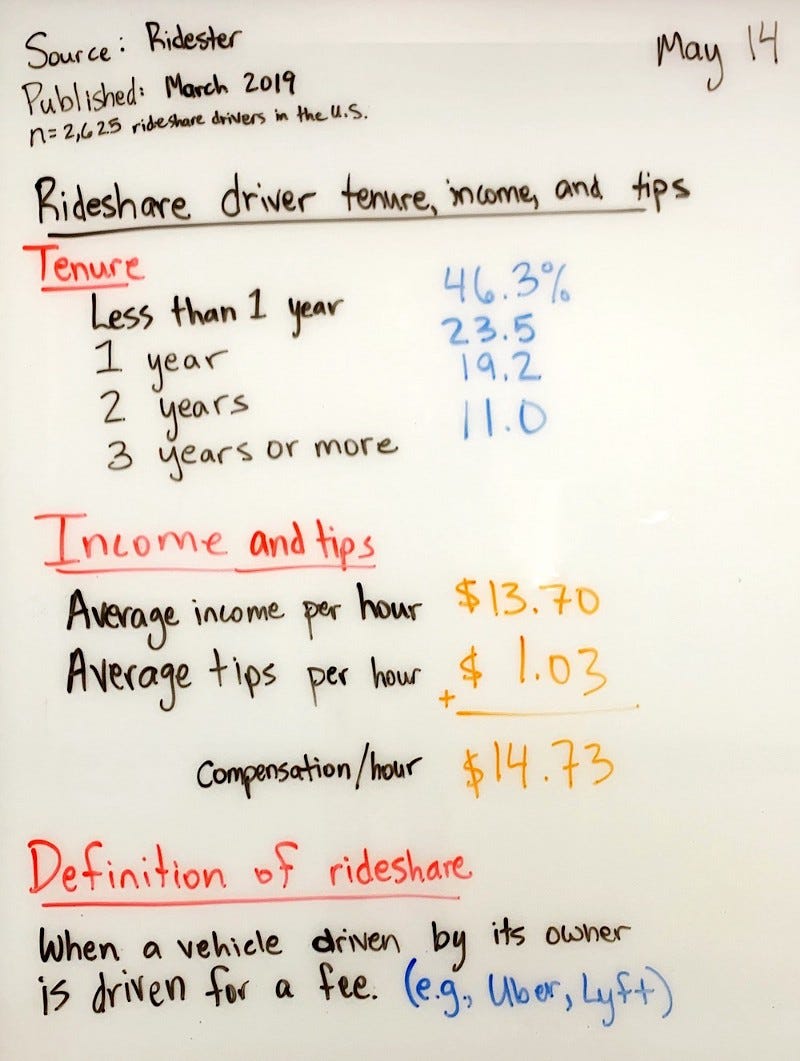 Source: Ridester
May 14
Published: March 2019
n=2,625 rideshare drivers in the U.S.
Rideshare driver tenure, income, and tips
Tenure
Less than 1 year 46.3%
1 year 23.5
2 years 19.2
3 years or more 11.0
Income and tips
Average income per hour $13.70
Average tips per hour + $ 1.03
Compensation/hour $14.73
Definition of rideshare
When a vehicle driven by its owner
is driven for a fee. (e.g., Uber, Lyft)